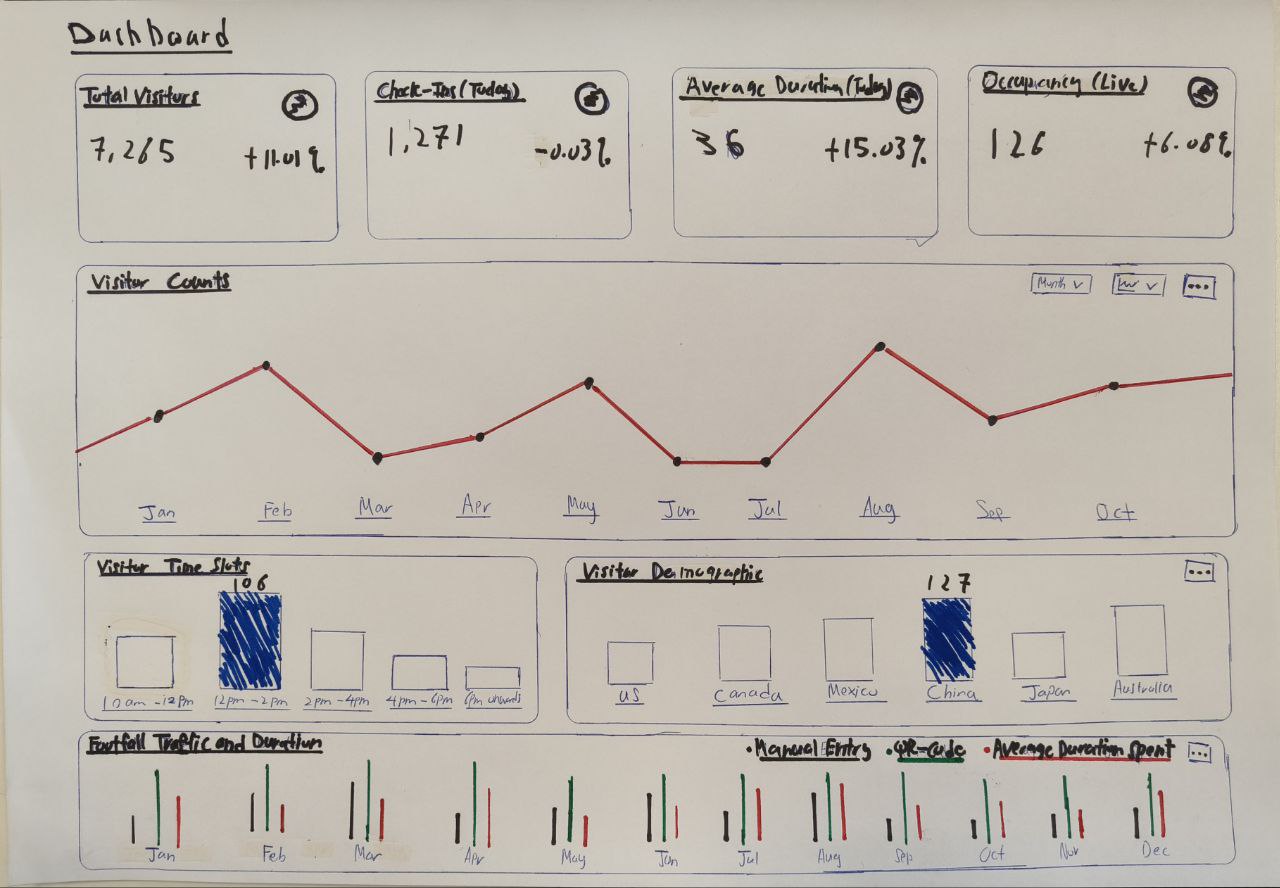 Dashboard
Total Visitors
7,265 +11.01%
Check-Ins (Today)
1,271 -0.03%
Average Duration (Today)
36 +15.03%
Occupancy (Live)
126 +6.08%
Visitor Counts
Month
Jan Feb Mar Apr May Jun Jul Aug Sep Oct
Visitor Time Slots
106
10am-12pm 12pm-2pm 2pm-4pm 4pm-6pm 6pm onwards
Visitor Demographic
127
US Canada Mexico China Japan Australia
Footfall Traffic and Duration
•Manual Entry •QR-Code •Average Duration Spent
Jan Feb Mar Apr May Jun Jul Aug Sep Oct Nov Dec